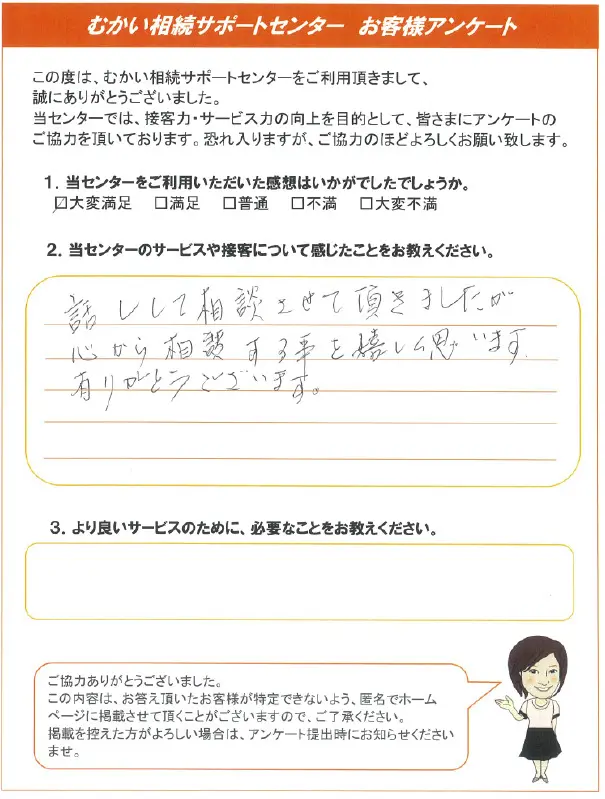 むかい相続サポートセンター お客様アンケート
この度は、むかい相続サポートセンターをご利用頂きまして、
誠にありがとうございました。
当センターでは、接客力・サービス力の向上を目的として、皆さまにアンケートの
ご協力を頂いております。恐れ入りますが、ご協力のほどよろしくお願い致します。
1. 当センターをご利用いただいた感想はいかがでしたでしょうか。
☑大変満足 □満足 □普通 □不満 □大変不満
2. 当センターのサービスや接客について感じたことをお教えください。
話ししして相談させて頂きましたが
心から相談する事を嬉しく思います。
有りがとうございます。
3. より良いサービスのために、必要なことをお教えください。
ご協力ありがとうございました。
この内容は、お答え頂いたお客様が特定できないよう、匿名でホーム
ページに掲載させて頂くことがございますので、ご了承ください。
掲載を控えた方がよろしい場合は、アンケート提出時にお知らせください
ませ。